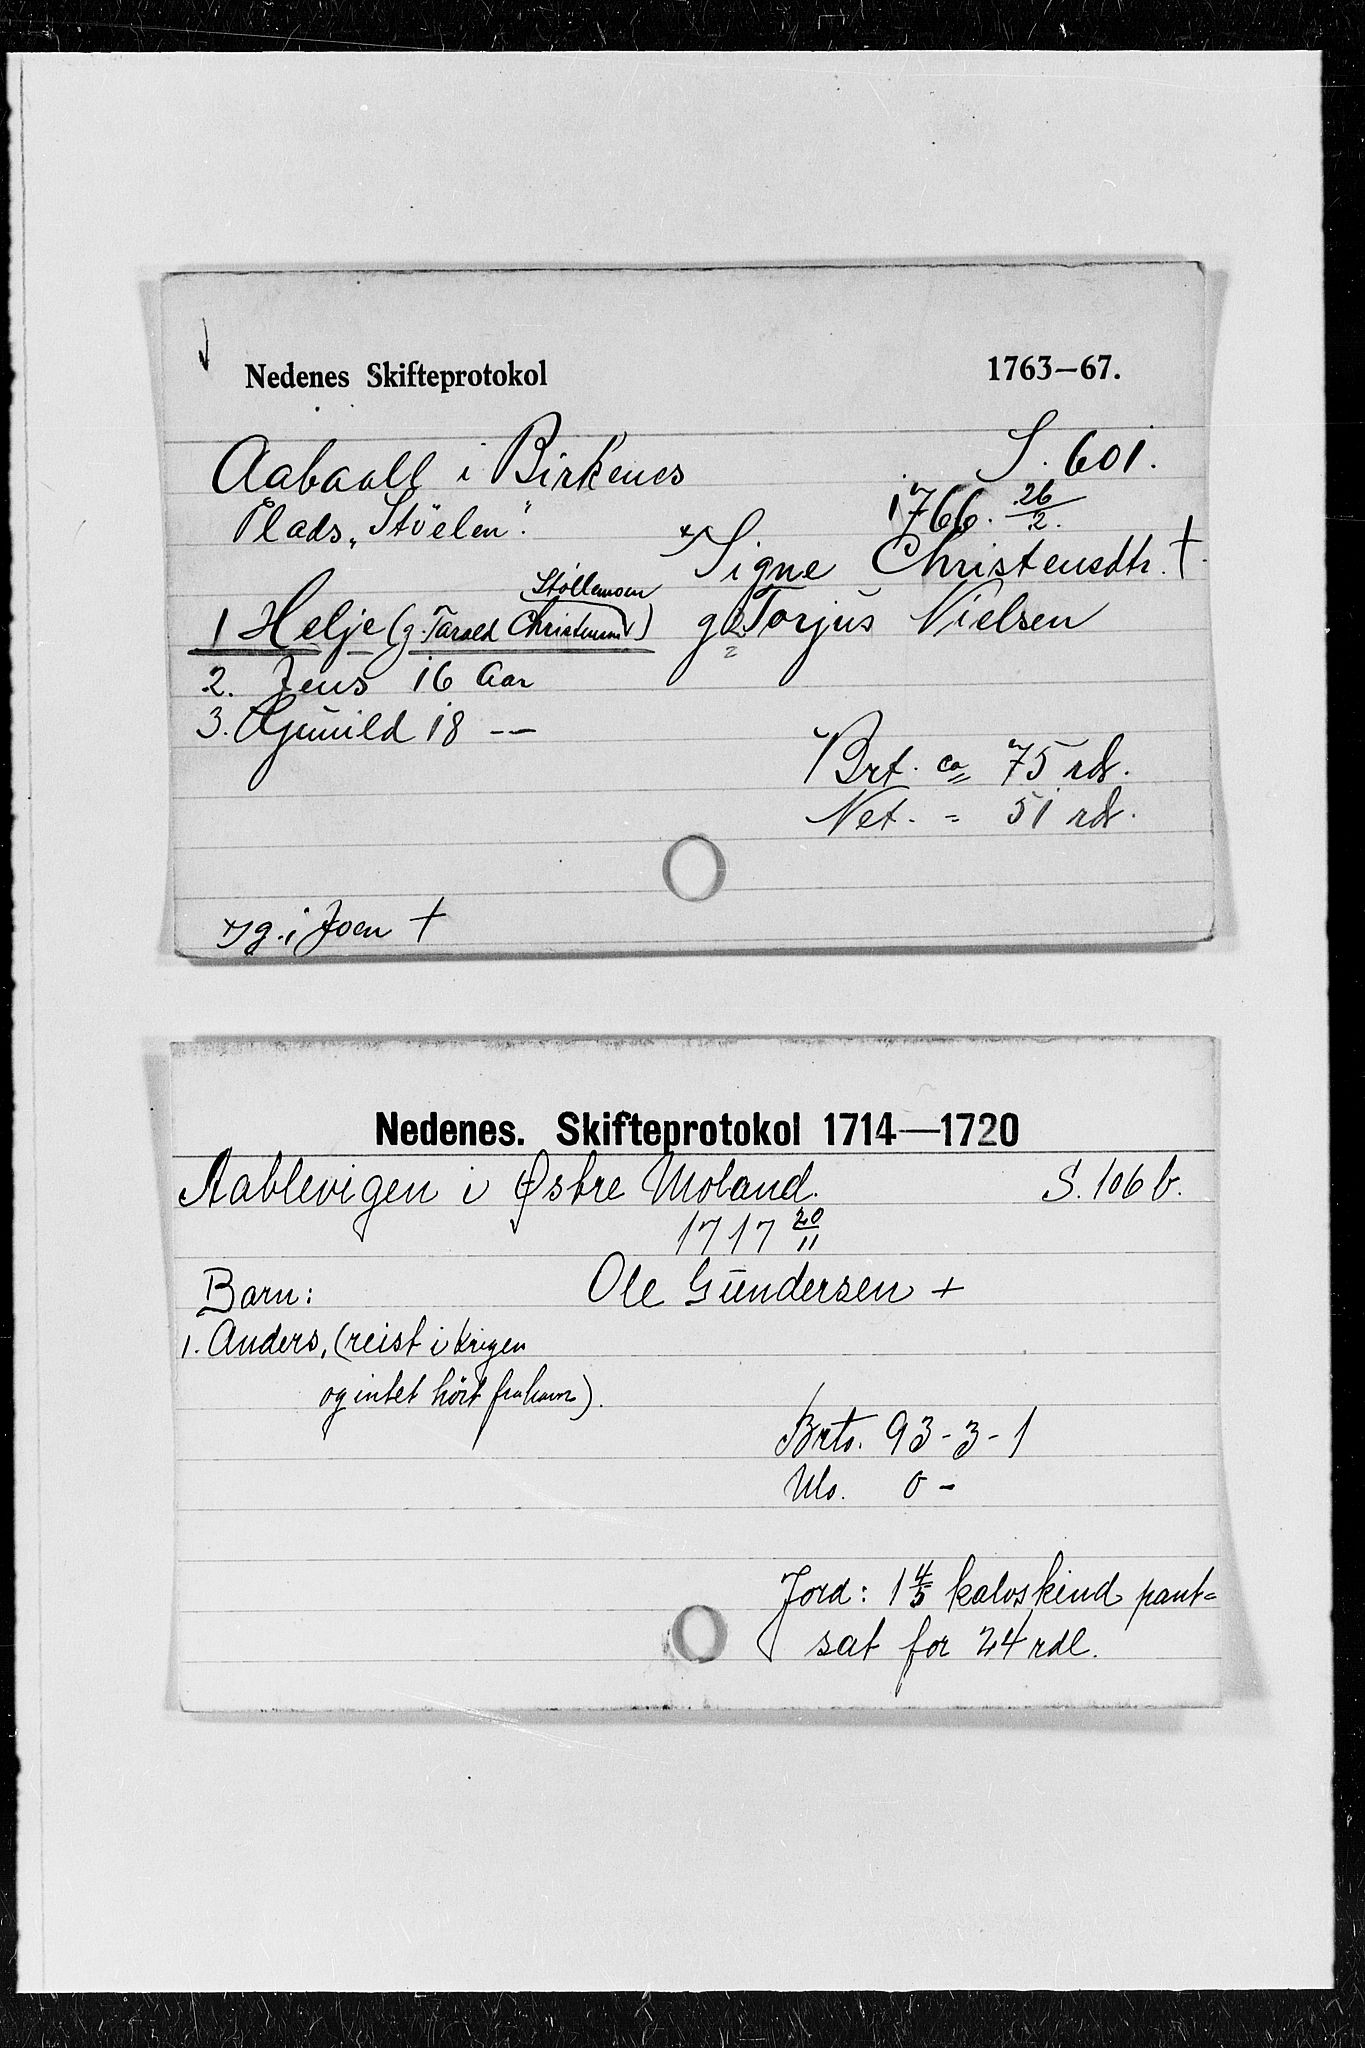 Nedenes Skifteprotokol 1763—67.
Aabaall i Birkenes S. 601.
Plads „Stöelen". 1766. 26/2.
* Signe Christensdtr. †.
Støllemoen
1 Helje (g. Tarald Christensen) g 2 Torjus Nielsen
2. Jens 16 Aar
3. Gunild 18 --
Brt. ca 75 rdr.
Net. = 51 rdr.
* g. i Joen †
Nedenes. Skifteprotokol 1714—1720
Aablevigen i Østre Moland. S. 106 b.
1717 20/11
Barn: Ole Gundersen +
1. Anders, (reist i krigen
og intet hört fra ham).
Brto. 93-3-1
0 -
Jord: 1 4/5 kalvskind pant=
sat for 24 rdl.